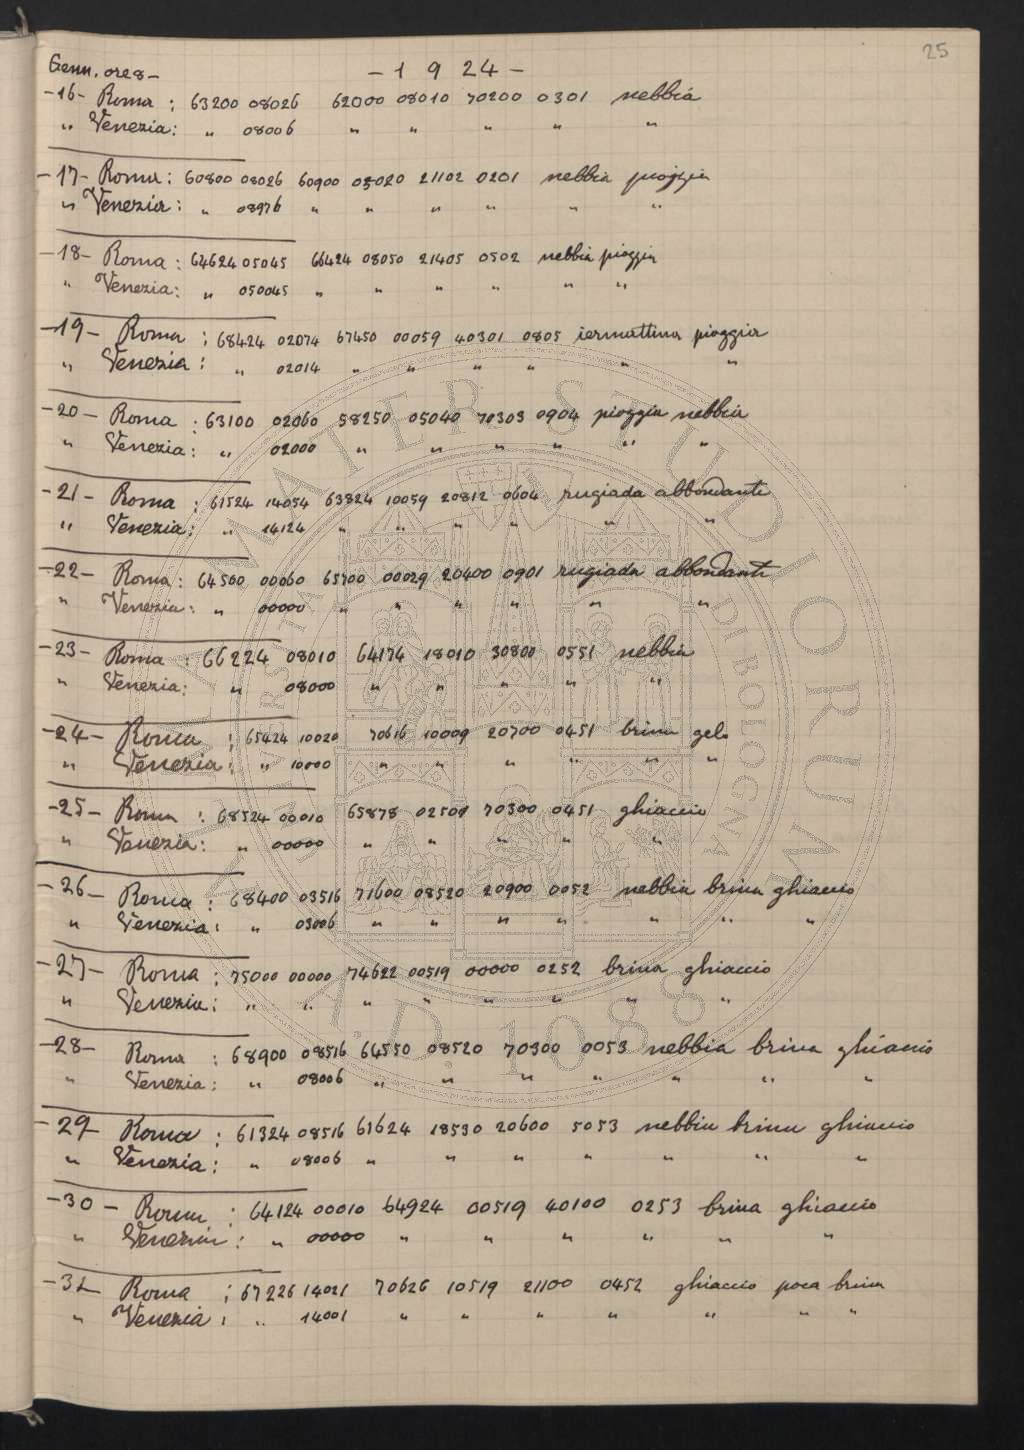 25
Genn. ore 8 - - 1 9 24 -
-16- Roma : 63200 08026 62000 08010 70200 0301 nebbia
" Venezia : " 08006 " " " " "
-17- Roma : 60800 08026 60900 05020 21102 0201 nebbia pioggia
" Venezia : " 08976 " " " " " "
-18- Roma : 64624 05045 66424 08050 21405 0502 nebbia pioggia
" Venezia : " 050045 " " " " " "
-19- Roma : 68424 02074 67450 00059 40301 0805 iermattina pioggia
" Venezia : " 02014 " " " " " "
-20- Roma : 63100 02060 58250 05040 70303 0904 pioggia nebbia
" Venezia : " 02000 " " " " " "
-21- Roma : 61524 14054 63824 10059 20812 0604 rugiada abbondante
" Venezia : " 14124 " " " " " "
-22- Roma : 64500 00060 65700 00029 20400 0901 rugiada abbondante
" Venezia : " 00000 " " " " " "
-23- Roma : 66224 08010 64174 18010 30800 0551 nebbia
" Venezia : " 08000 " " " " "
-24- Roma : 65424 10020 70616 10009 20700 0451 brina gelo
" Venezia : " 10000 " " " " " "
-25- Roma : 68524 00010 65878 02501 70300 0451 ghiaccio
" Venezia : " 00000 " " " " "
-26- Roma : 68400 03516 71600 08520 20900 0052 nebbia brina ghiaccio
" Venezia : " 03006 " " " " " " "
-27- Roma : 75000 00000 74622 00519 00000 0252 brina ghiaccio
" Venezia : " " " " " " " "
-28- Roma : 68900 08516 64550 08520 70300 0053 nebbia brina ghiaccio
" Venezia : " 08006 " " " " " " "
-29- Roma : 61324 08516 61624 18530 20600 5053 nebbia brina ghiaccio
" Venezia : " 08006 " " " " " " "
-30- Roma : 64124 00010 64924 00519 40100 0253 brina ghiaccio
" Venezia : " 00000 " " " " " "
-31- Roma : 67226 14021 70626 10519 21100 0452 ghiaccio poca brina
" Venezia : " 14001 " " " " " " "
ALMA MATER STUDIORUM
UNIVERSITÀ DI BOLOGNA
A.D. 1088